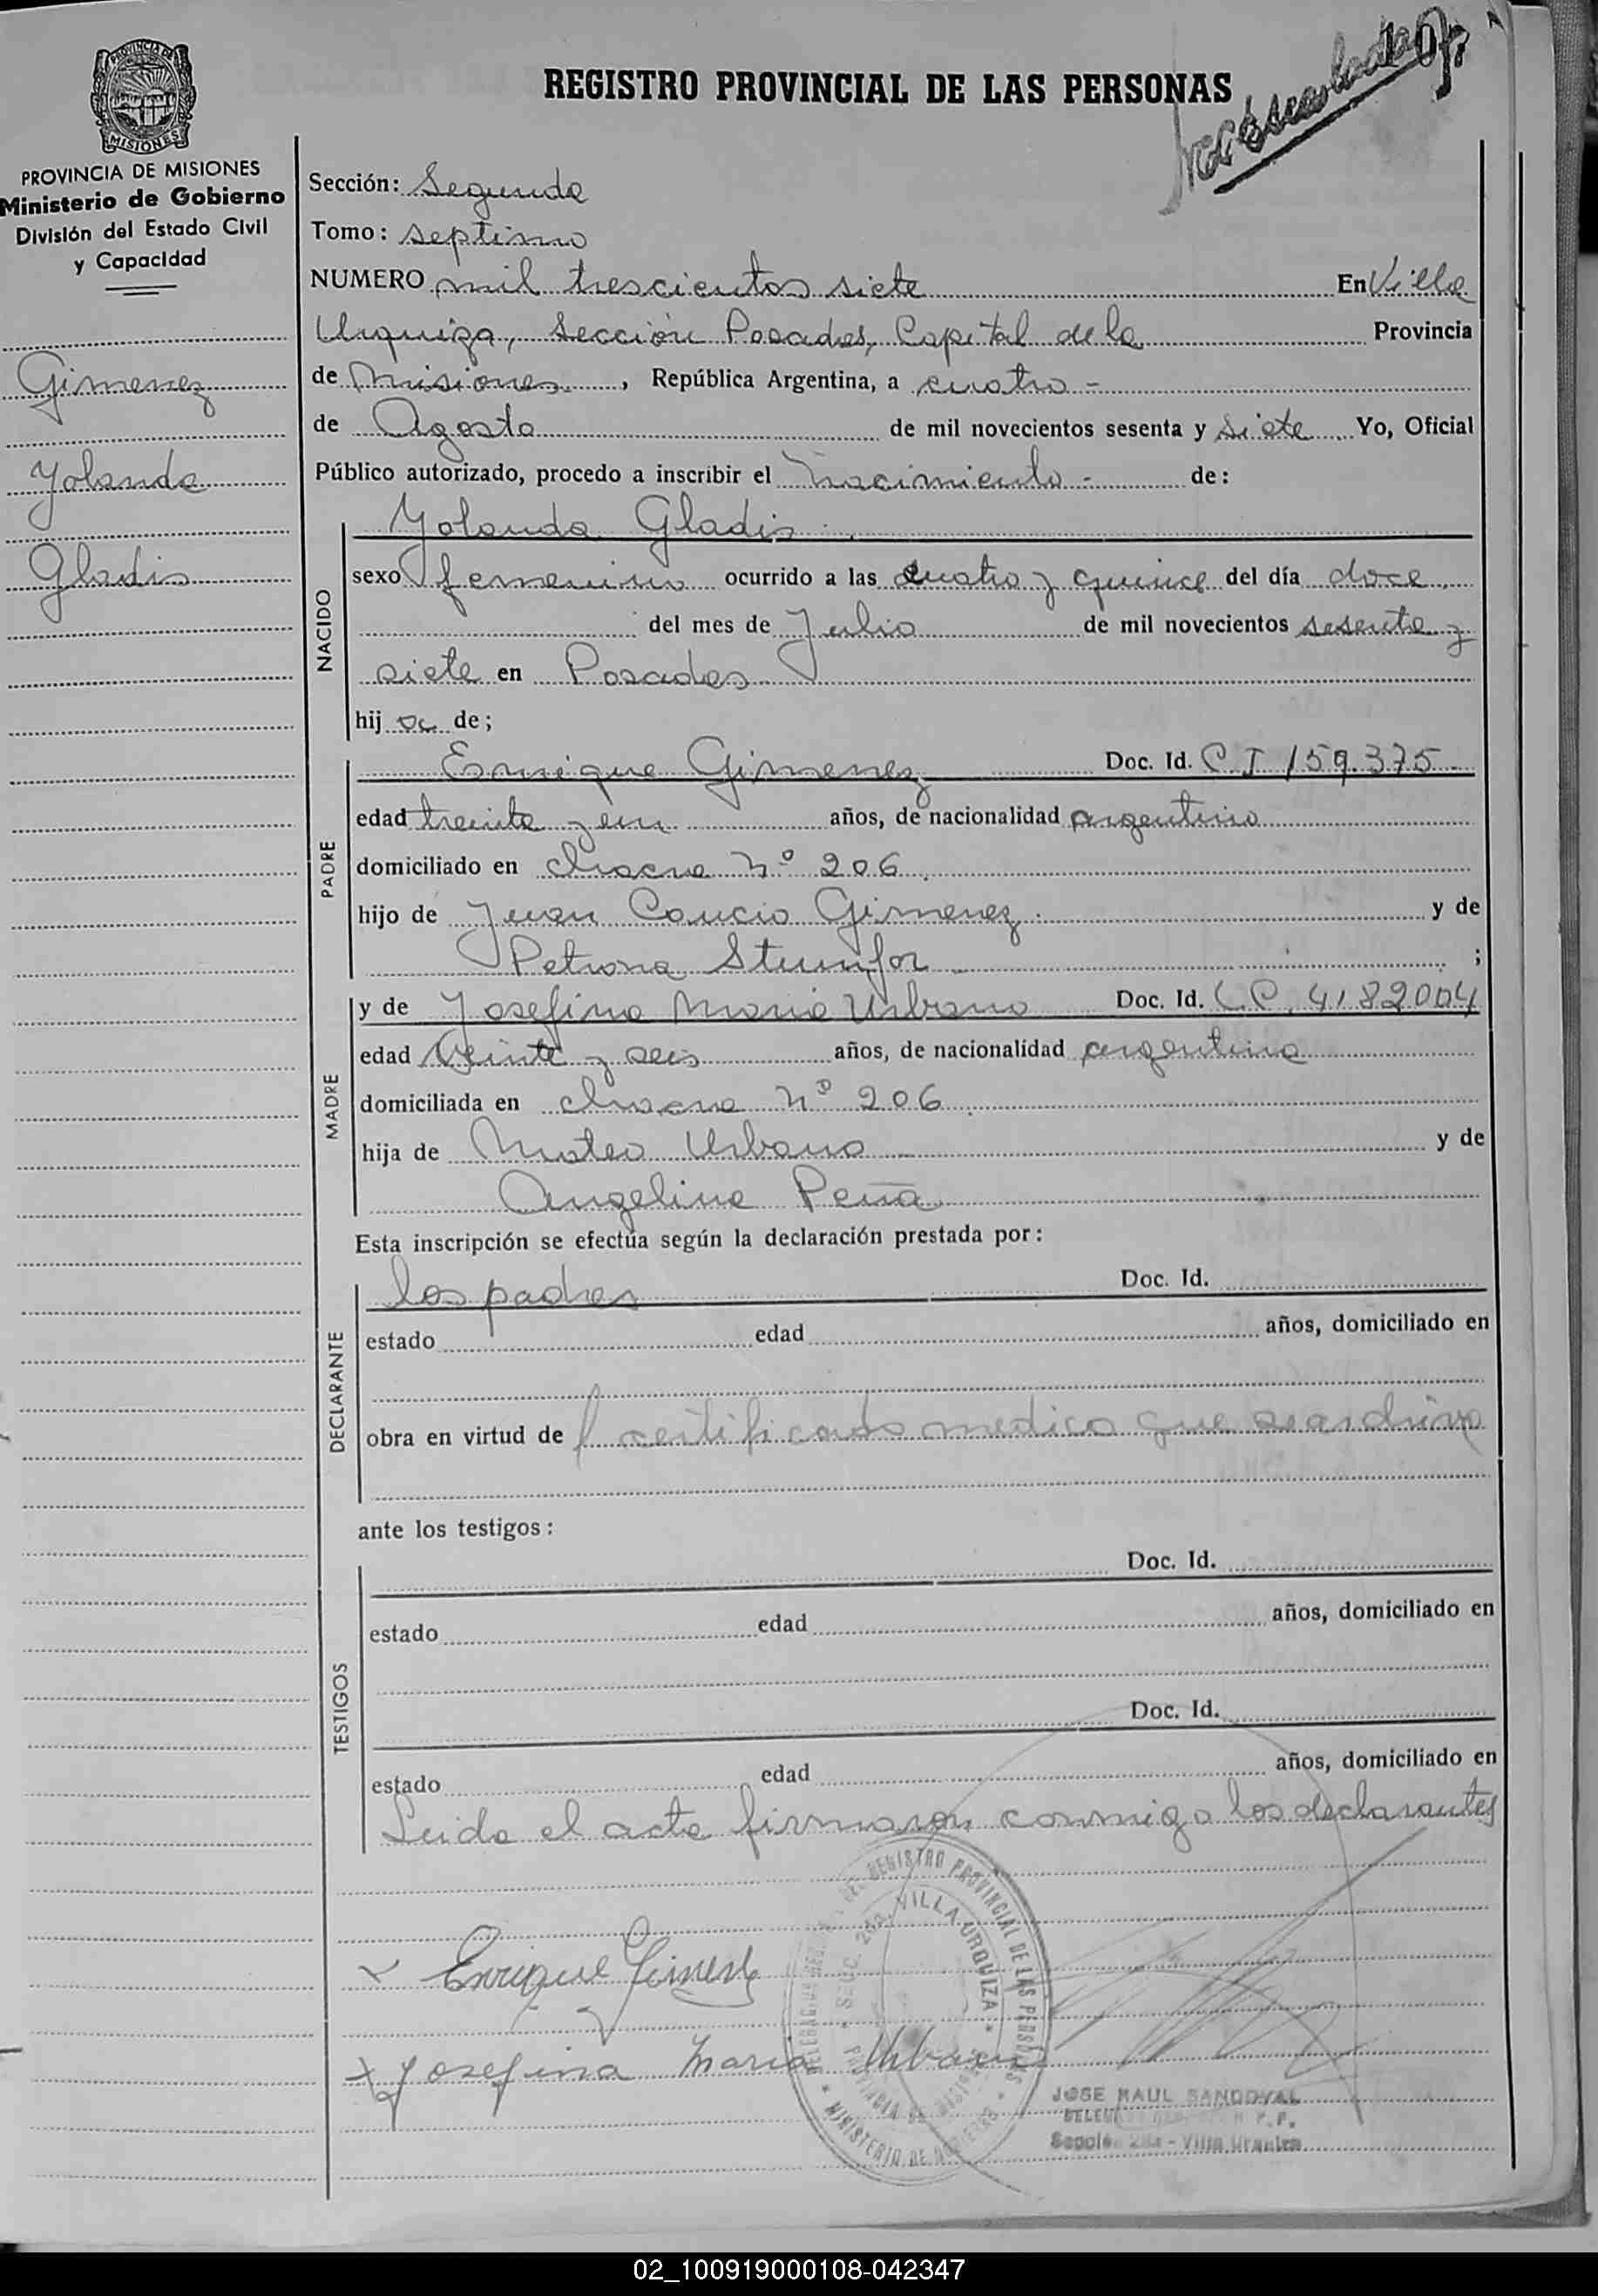 REGISTRO PROVINCIAL DE LAS PERSONAS
PROVINCIA DE
MISIONES
PROVINCIA DE MISIONES
Ministerio de Gobierno
División del Estado Civil
y Capacidad
Gimenez
Yolanda
Gladis
Sección: Segunda
Tomo: septimo
NUMERO mil trescientos siete En Villa
Urquiza, Sección Posadas, Capital de la Provincia
de Misiones, República Argentina, a cuatro -
de Agosto de mil novecientos sesenta y siete Yo, Oficial
Público autorizado, procedo a inscribir el nacimiento - de:
NACIDO
Yolanda Gladis
sexo femenino ocurrido a las cuatro y quince del día doce
del mes de Julio de mil novecientos sesenta y
siete en Posadas
hij a de;
PADRE
Enrique Gimenez Doc. Id. C I 159.375
edad treinta y un años, de nacionalidad argentino
domiciliado en chacra Nº 206
hijo de Juan Gimenez y de
Petrona ;
MADRE
y de Josefina Maria Urbano Doc. Id. L.C. 4182004
edad veinte y seis años, de nacionalidad argentina
domiciliada en chacra Nº 206
hija de Mateo Urbano y de
Angelina Peña
Esta inscripción se efectúa según la declaración prestada por:
DECLARANTE
los padres Doc. Id.
estado edad años, domiciliado en
obra en virtud de certificado medico que se archiva
ante los testigos:
TESTIGOS
Doc. Id.
estado edad años, domiciliado en
Doc. Id.
estado edad años, domiciliado en
Leida el acta firmaron conmigo los declarantes
REGISTRO PROVINCIAL DE LAS PERSONAS
VILLA URQUIZA
MINISTERIO DE GOBIERNO
Enrique Gimenez
x Josefina Maria Urbano
JOSE RAUL SANDOVAL
Sección 2da - Villa Urquiza
02_100919000108-042347